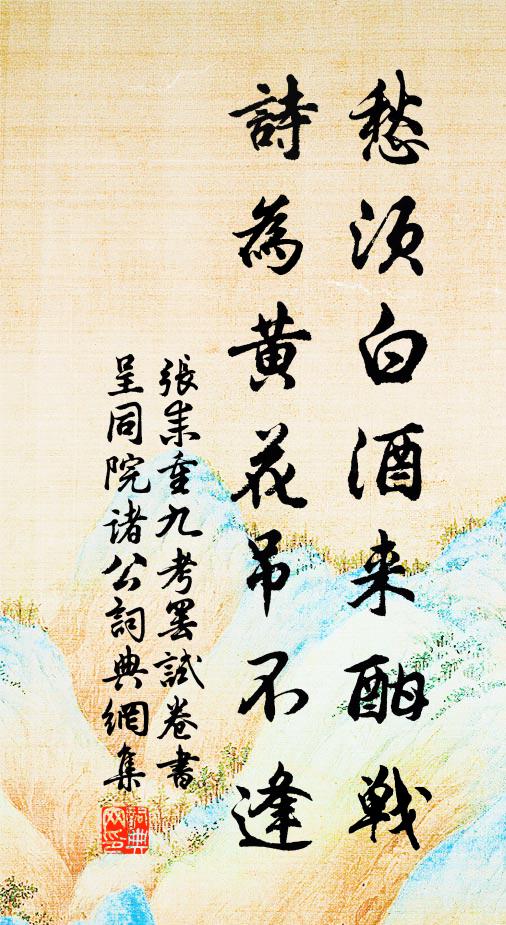 愁须白酒来酣战
詩為黄花吊不逢
張耒重九考罢試卷書
呈同院诸公詞典網集
詞典网印